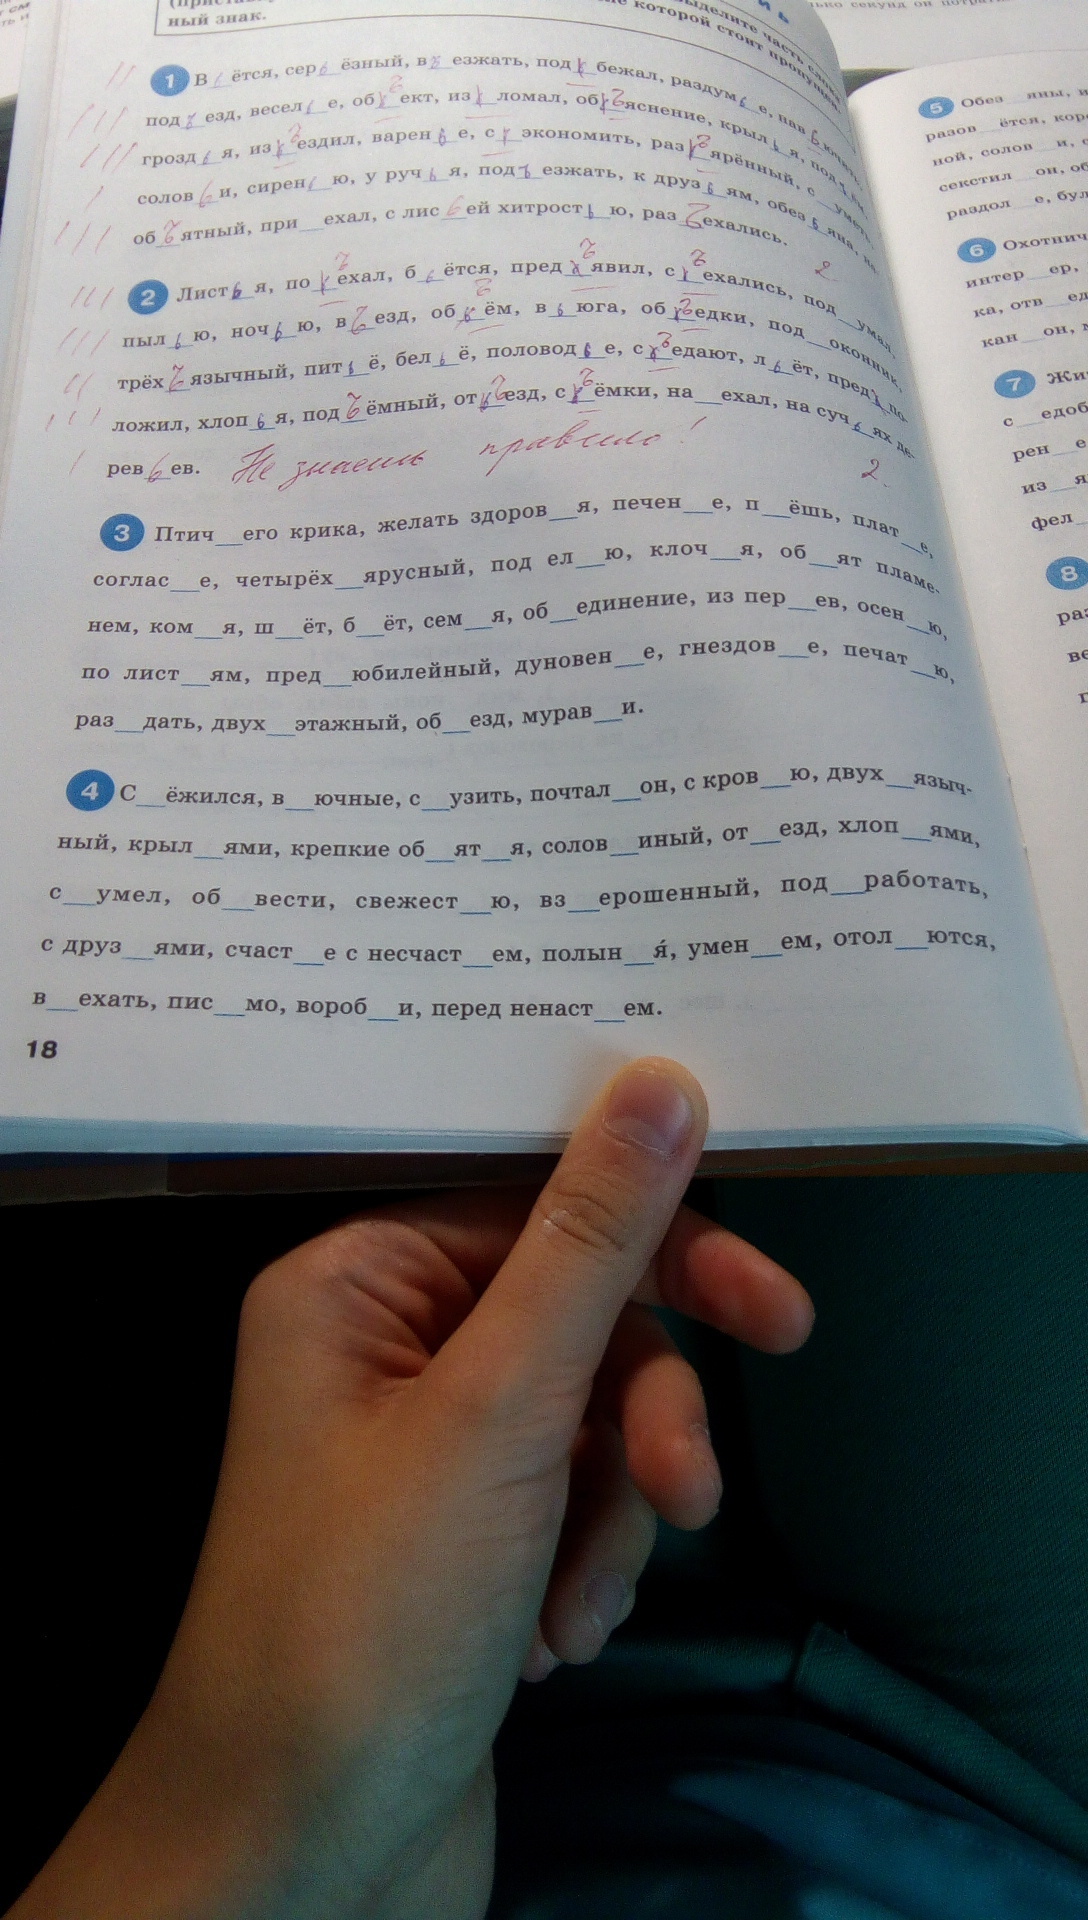 ный знак.
которой стоит пропущен
1 В ь ётся, сер ь ёзный, в ъ езжать, под__бежал, раздум ь е, нав ь ючить,
под ъ езд, весел ь е, об ъ ект, из__ломал, об ъ яснение, крыл ь я,
грозд ь я, из ъ ездил, варен ь е, с__экономить, раз ъ ярённый, с__уметь,
солов ь и, сирен ь ю, у руч ь я, под ъ езжать, к друз ь ям, обез ь яна,
об ъ ятный, при__ехал, с лис ь ей хитрост ь ю, раз ъ ехались.
2
2 Лист ь я, по ъ ехал, б ь ётся, пред ъ явил, с ъ ехались, под__умал,
пыл ь ю, ноч ь ю, в ъ езд, об ъ ём, в ь юга, об ъ едки, под__оконник,
трёх ъ язычный, пит ь ё, бел ь ё, половод ь е, с ъ едают, л ь ёт, пред__по-
ложил, хлоп ь я, под ъ ёмный, от ъ езд, с ъ ёмки, на__ехал, на суч ь ях де-
рев ь ев. Не знаешь правило!
2.
3 Птич__его крика, желать здоров__я, печен__е, п__ёшь, плат__е,
соглас__е, четырёх__ярусный, под ел__ю, клоч__я, об__ят пламе-
нем, ком__я, ш__ёт, б__ёт, сем__я, об__единение, из пер__ев, осен__ю,
по лист__ям, пред__юбилейный, дуновен__е, гнездов__е, печат__ю,
раз__дать, двух__этажный, об__езд, мурав__и.
4 С__ёжился, в__ючные, с__узить, почтал__он, с кров__ю, двух__языч-
ный, крыл__ями, крепкие об__ят__я, солов__иный, от__езд, хлоп__ями,
с__умел, об__вести, свежест__ю, вз__ерошенный, под__работать,
с друз__ями, счаст__е с несчаст__ем, полын__я́, умен__ем, отол__ются,
в__ехать, пис__мо, вороб__и, перед ненаст__ем.
18
5 Обез__яны,
разов__ётся,
ной, солов__и,
секстил__он,
раздол__е,
6 Охотнич
интер__ер,
ка, отв__ед
кан__он,
7
с__едоб
рен__е
из__я
фел
8